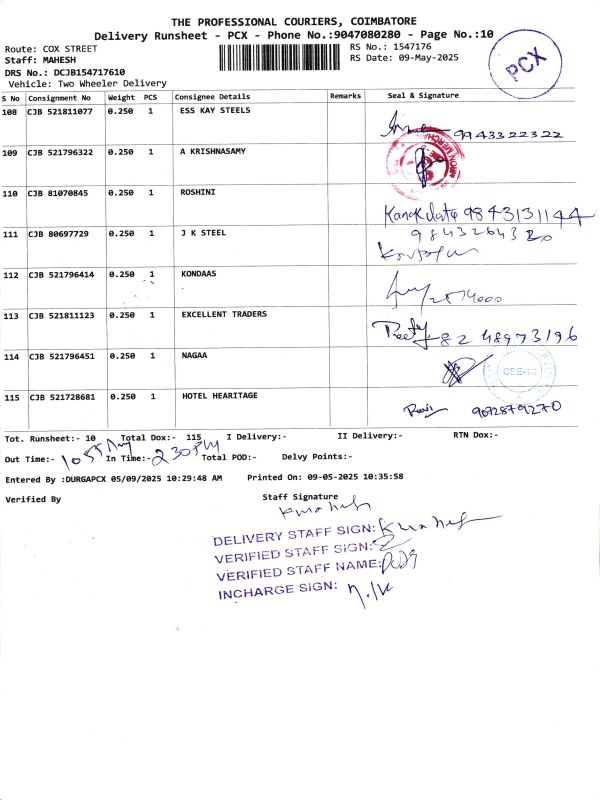 THE PROFESSIONAL COURIERS, COIMBATORE
Delivery Runsheet - PCX - Phone No.:9047080280 - Page No.:10
Route: COX STREET RS No.: 1547176
Staff: MAHESH RS Date: 09-May-2025
DRS No.: DCJB154717610
Vehicle: Two Wheeler Delivery
PCX
S No Consignment No Weight PCS Consignee Details Remarks Seal & Signature
108 CJB 521811077 0.250 1 ESS KAY STEELS
9943322322
109 CJB 521796322 0.250 1 A KRISHNASAMY
110 CJB 81070845 0.250 1 ROSHINI
9843131144
111 CJB 80697729 0.250 1 J K STEEL
112 CJB 521796414 0.250 1 KONDAAS
113 CJB 521811123 0.250 1 EXCELLENT TRADERS
8248973196
114 CJB 521796451 0.250 1 NAGAA
CBE-18
115 CJB 521728681 0.250 1 HOTEL HEARITAGE
Ravi 9072879270
Tot. Runsheet:- 10 Total Dox:- 115 I Delivery:- II Delivery:- RTN Dox:-
Out Time:- 10 55 AM In Time:- 2 30 PM Total POD:- Delvy Points:-
Entered By :DURGAPCX 05/09/2025 10:29:48 AM Printed On: 09-05-2025 10:35:58
Verified By Staff Signature
DELIVERY STAFF SIGN:
VERIFIED STAFF SIGN:
VERIFIED STAFF NAME:
INCHARGE SIGN: